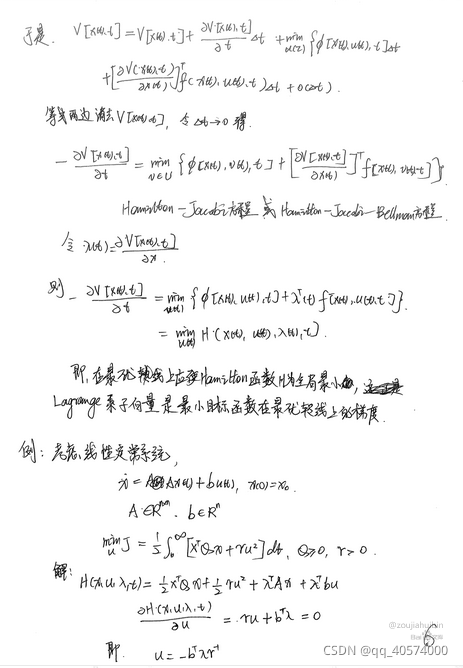 于是. V[x(t),t] = V[x(t),t] + ∂V[x(t),t]/∂t Δt + min u(t) {φ[x(t),u(t),t]Δt
+ [∂V(x(t),t)/∂x(t)]ᵀ f(x(t),u(t),t)Δt + o(Δt).
等式两边消去V[x(t),t], 令Δt→0 得.
- ∂V[x(t),t]/∂t = min u∈U {φ[x(t),u(t),t] + [∂V[x(t),t]/∂x(t)]ᵀ f[x(t),u(t),t]}.
Hamilton-Jacobi方程 或 Hamilton-Jacobi-Bellman方程.
令 λ(t) = ∂V[x(t),t]/∂x.
则 - ∂V[x(t),t]/∂t = min u(t) {φ[x(t),u(t),t] + λᵀ(t) f[x(t),u(t),t]}.
= min u(t) H(x(t), u(t), λ(t), t).
即, 在最优轨线上应使Hamilton函数H为全局最小,
Lagrange乘子向量是最小目标函数在最优轨线上的梯度.
例: 考虑线性定常系统,
ẋ = Ax(t) + bu(t), x(0) = x₀
A∈Rⁿˣⁿ, b∈Rⁿ
min u J = ½∫₀^∞ [xᵀQx + ru²]dt, Q≥0, r>0.
解: H(x,u,λ,t) = ½xᵀQx + ½ru² + λᵀAx + λᵀbu
∂H(x,u,λ,t)/∂u = ru + bᵀλ = 0
即. u = -bᵀλr⁻¹
6
@zoujiahuibin
CSDN @qq_40574000